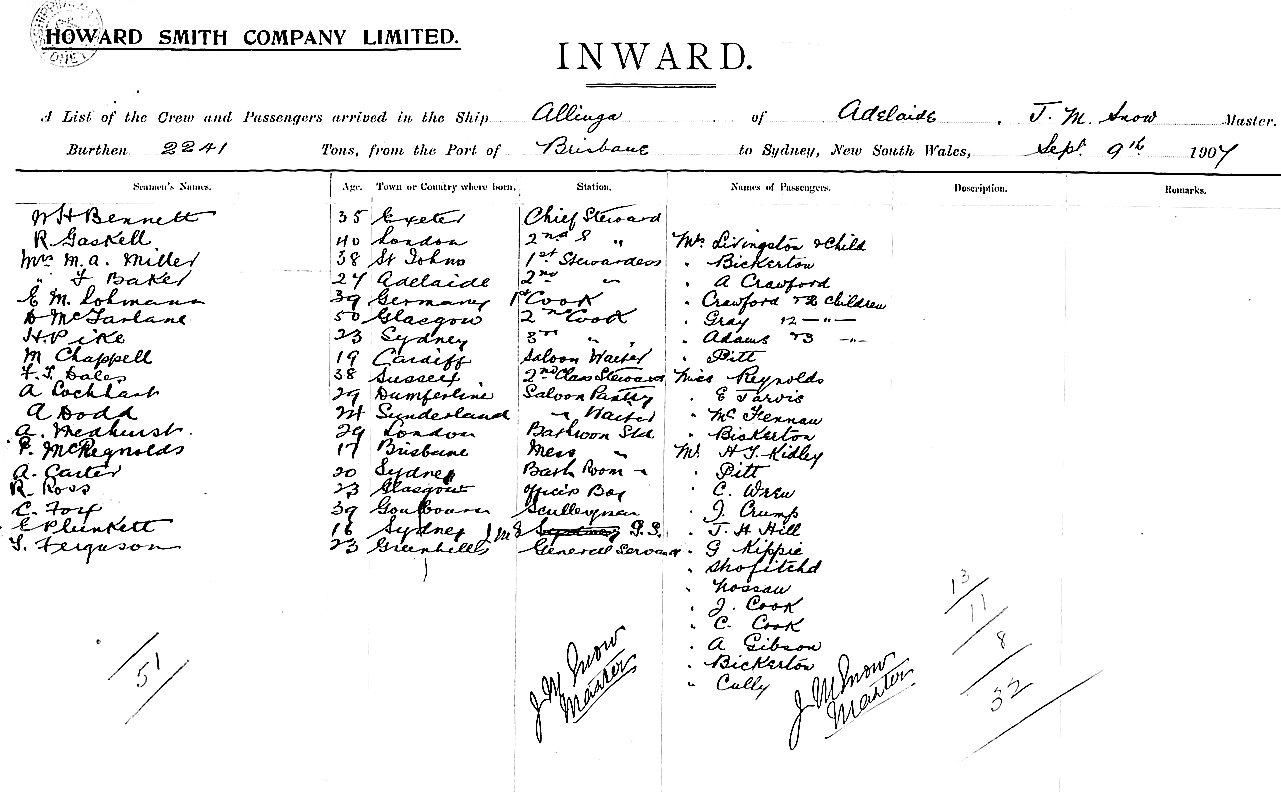 HOWARD SMITH COMPANY LIMITED.
INWARD.
A List of the Crew and Passengers arrived in the Ship Allinga of Adelaide, J. M. Snow Master.
Burthen 2241 Tons, from the Port of Brisbane to Sydney, New South Wales, Sept 9th 1907
Seamen's Names. Age. Town or Country where born. Station. Names of Passengers. Description. Remarks.
W H Bennett 35 Exeter Chief Steward
R. Gaskell 40 London 2nd S " Mrs Livingston & Child
Mrs M. A. Miller 38 St Johns 1st Stewardess " Bickerton
" F Baker 27 Adelaide 2nd " " A Crawford
E M. Lohmann 39 Germany 1st Cook " Crawford & 2 Children
D McFarlane 50 Glasgow 2nd Cook " Gray 12 — " —
H. Pike 23 Sydney 3rd " " Adams & 3 — " —
M Chappell 19 Cardiff Saloon Waiter " Pitt
F. T. Dales 38 Sussex 2nd Class Steward Miss Reynolds
A Lockhart 29 Dumferline Saloon Pantry " E Jarvis
A Dodd 24 Sunderland " Waiter " Mc Lennan
A. Medhurst 29 London Bathroon Std. " Bickerton
P. McReynolds 17 Brisbane Mess " Mr H. T. Kidley
A. Carter 20 Sydney Bath Room " " Pitt
R. Ross 23 Glasgow Officers Boy " C. Wren
C. Foy 39 Goulbourn Sculleyman " J. Crump
E Plunkett 16 Sydney J M S G. S. " J. H Hill
T. Ferguson 23 Greenhills General Servant " G Kippie
" Nossau
" J. Cook
" C. Cook
" A Gibson
" Bickerton
" Cully
51
J M Snow
Master
J M Snow
Master
13
11
8
32